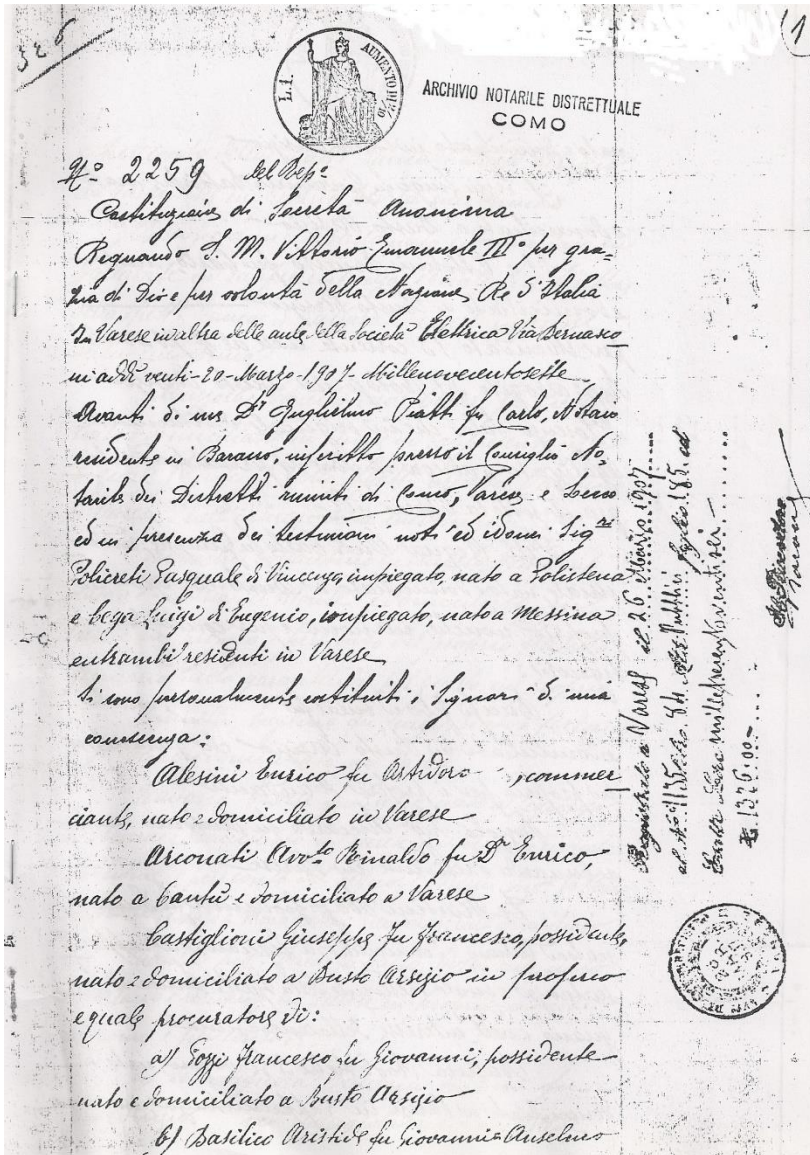 526
(1
L.1.
AUMENTO
ARCHIVIO NOTARILE DISTRETTUALE
COMO
No 2259 del Repo
Costituzione di Società Anonima
Regnando S. M. Vittorio Emanuele III° per gra=
zia di Dio e per volontà della Nazione Re d'Italia
In Varese in altra delle aule della Società Elettrica Via Bernasco=
ni addì venti - 20 - Marzo - 1907 - Millenovecentosette
Avanti di me Dr Guglielmo Piatti fu Carlo, Notaio
residente in Barasso, inscritto presso il Consiglio No=
tarile dei Distretti riuniti di Como, Varese e Lecco
ed in presenza dei testimoni noti ed idonei Sigri
Policreti Pasquale di Vincenzo, impiegato, nato a Polistena
e Cega Luigi di Eugenio, impiegato, nato a Messina
entrambi residenti in Varese
Si sono personalmente costituiti i Signori di mia
conoscenza:
Alesini Enrico fu Artidoro, commer
ciante, nato e domiciliato in Varese
Arconati Avvto Rinaldo fu Dr Enrico,
nato a Cantù e domiciliato a Varese
Castiglioni Giuseppe fu Francesco, possidente,
nato e domiciliato a Busto Arsizio in proprio
e quale procuratore di:
a) Pozzi Francesco fu Giovanni, possidente
nato e domiciliato a Busto Arsizio
b) Basilico Aristide fu Giovanni Anselmo
Registrato a Varese il 26 Marzo 1907
al No 1135 84 Atti Pubblici foglio 185 ed
Lire milletrecentoventisei
L. 1326.00